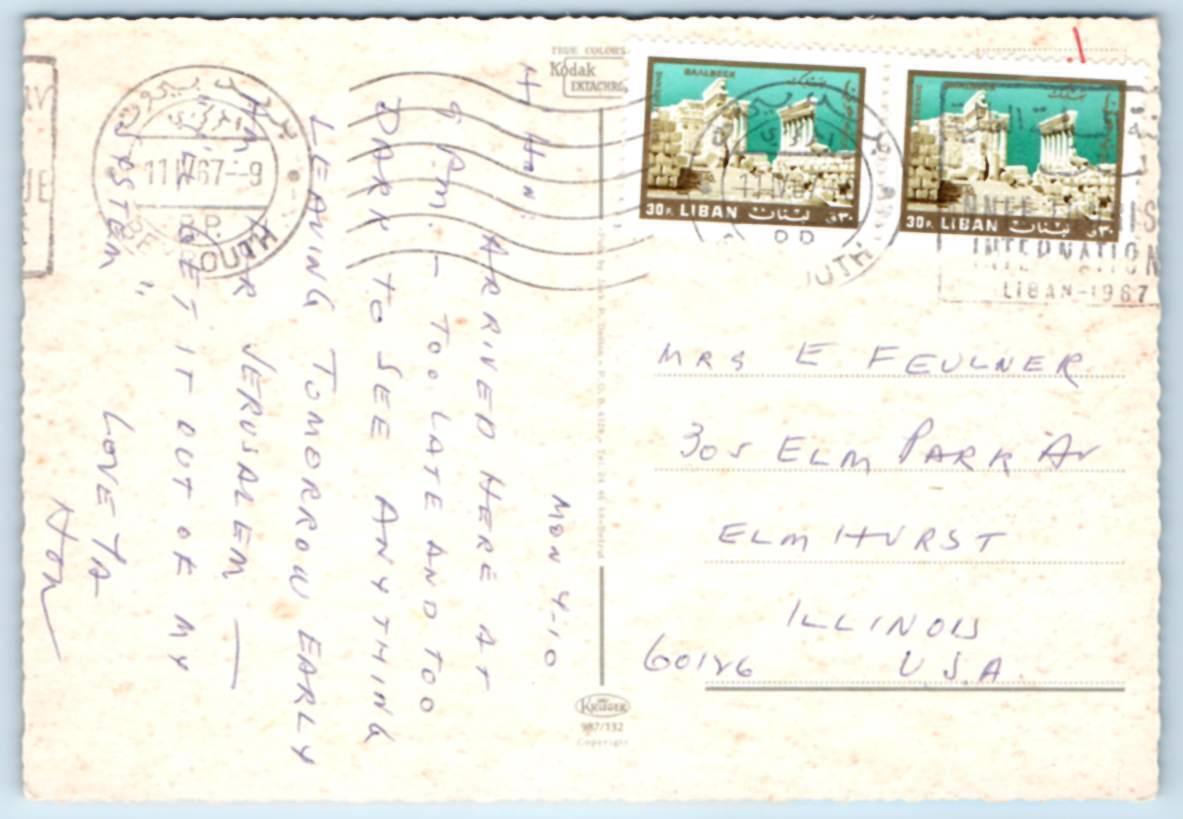 MON 4-10
HI HON
ARRIVED HERE AT
8 PM. — TOO LATE AND TOO
DARK TO SEE ANYTHING
LEAVING TOMORROW EARLY
AM FOR JERUSALEM —
I'LL GET IT OUT OF MY
SYSTEM"
LOVE YA
HON
TRUE COLORS
Kodak
EKTACHROME
BAALBECK
30 P. LIBAN لبنان ٣٠ ق
30 P. LIBAN لبنان ٣٠ ق
11 IV 67--9
INTERNATION
LIBAN-1967
MRS E FEULNER
305 ELM PARK AV
ELMHURST
ILLINOIS
60126 U.S.A.
KRÜGER
987/132
Copyright